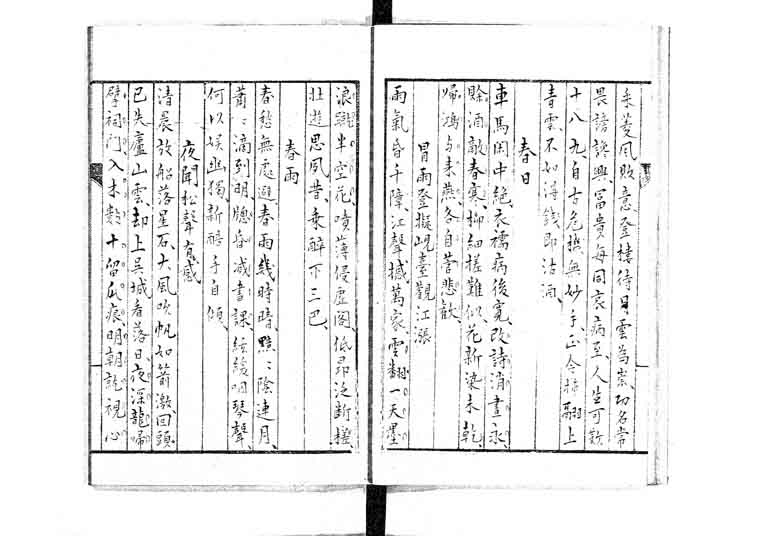 采菱風敗意登樓待月雲為祟功名常
畏謗讒興富貴每同衰病至人生可歎
十八九自古危機無妙手正令插翮上
青雲不如得錢即沽酒
春日
車馬閑中絕衣襦病後寬改詩消晝永
賒酒敵春寒柳細搓難似花新染未乾
歸鴻與來燕各自悲歡
冒雨登擬峴臺觀江漲
雨氣昏千嶂江聲撼萬家雲翻一天墨
浪蹴半空花噴薄侵虛閣低昂泛斷槎
壯遊思夙昔乘醉下三巴
春雨
春愁無處避春雨幾時晴黯〻陰連月
蕭〻滴到明牕昏減書課絃緩咽琴聲
何以娛幽獨新醅手自傾
夜聞松聲有感
清晨放船落星石大風吹帆如箭激回頭
已失廬山雲却上吳城看落日夜深龍歸
擘祠門入木數寸留爪痕明朝就視心